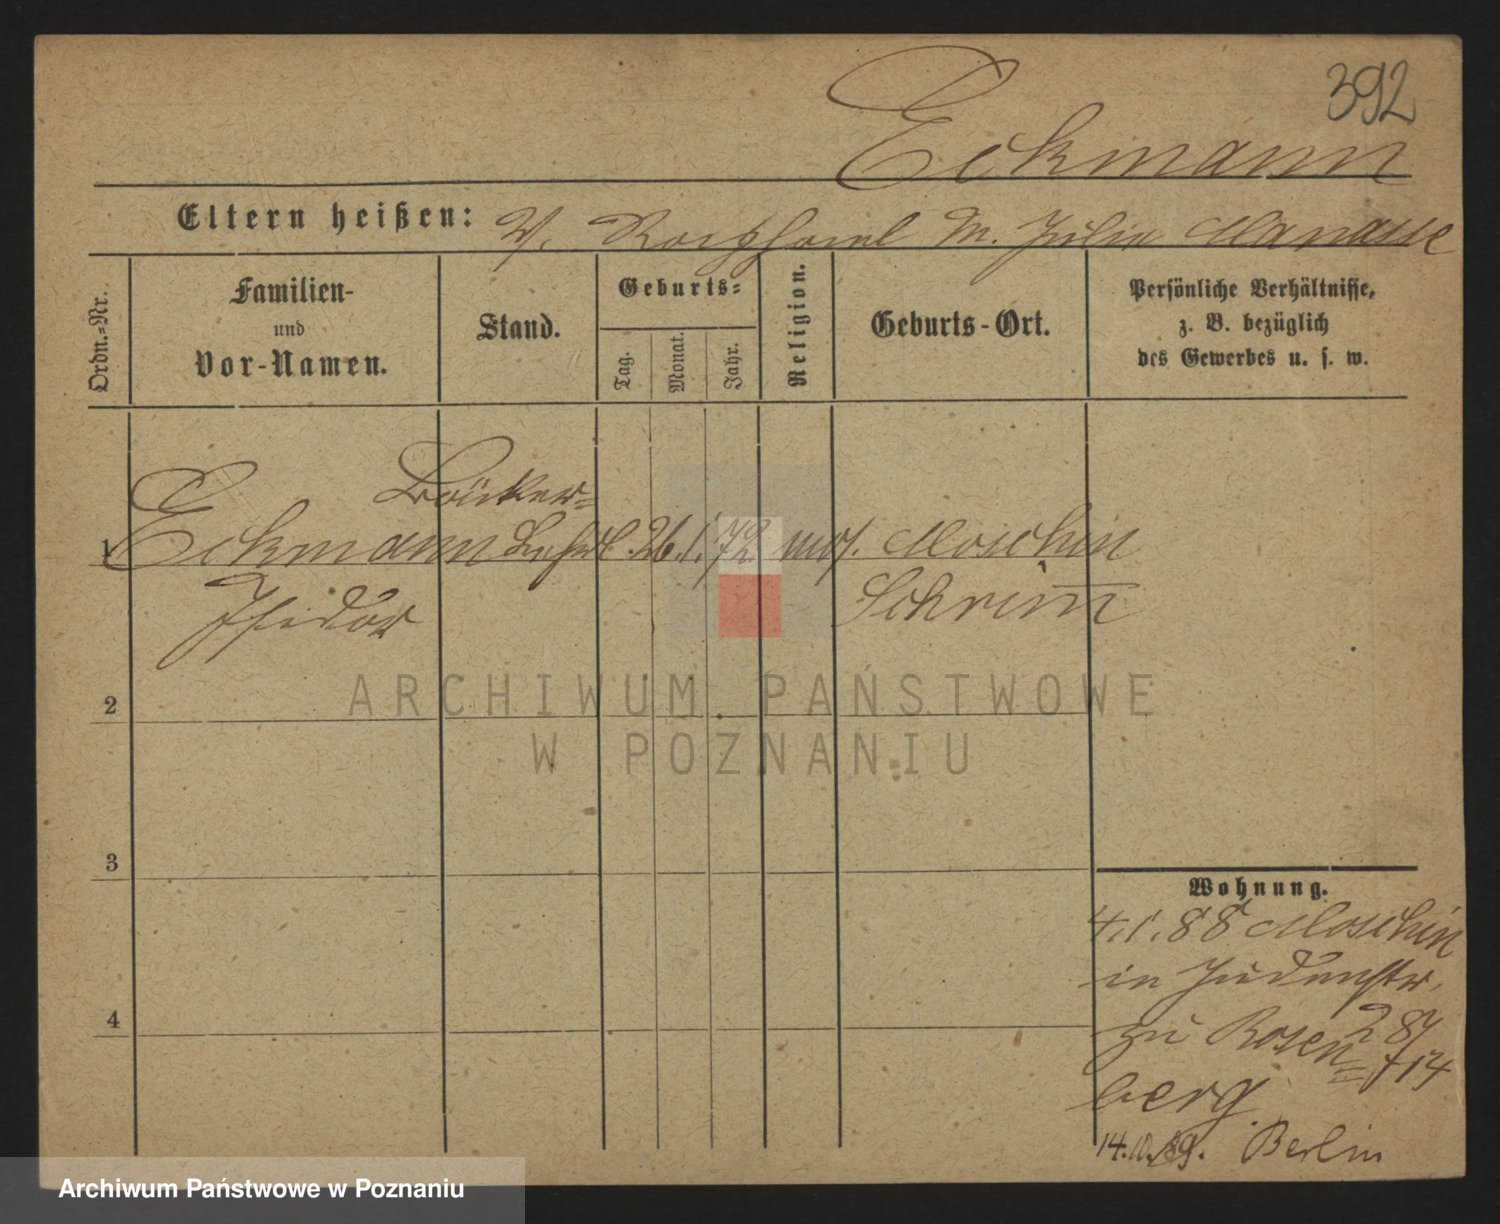 392
Eckmann
Eltern heißen: V. Raphael M. Julie Manasse
Ordn.-Nr.
Familien-
und
Vor-Namen.
Stand.
Geburts-
Tag.
Monat.
Jahr.
Religion.
Geburts-Ort.
Persönliche Verhältnisse,
z. B. bezüglich
des Gewerbes u. s. w.
Bäcker-
1 Eckmann Lehrl. 26. 1. 72 mos. Moschin
Isidor Schrim̅
2
3
4
Wohnung.
4.1.88 Moschin
in Judenstr.
zu Rosen- 287
berg. 714
14.10.89. Berlin
ARCHIWUM PAŃSTWOWE
W POZNANIU
Archiwum Państwowe w Poznaniu